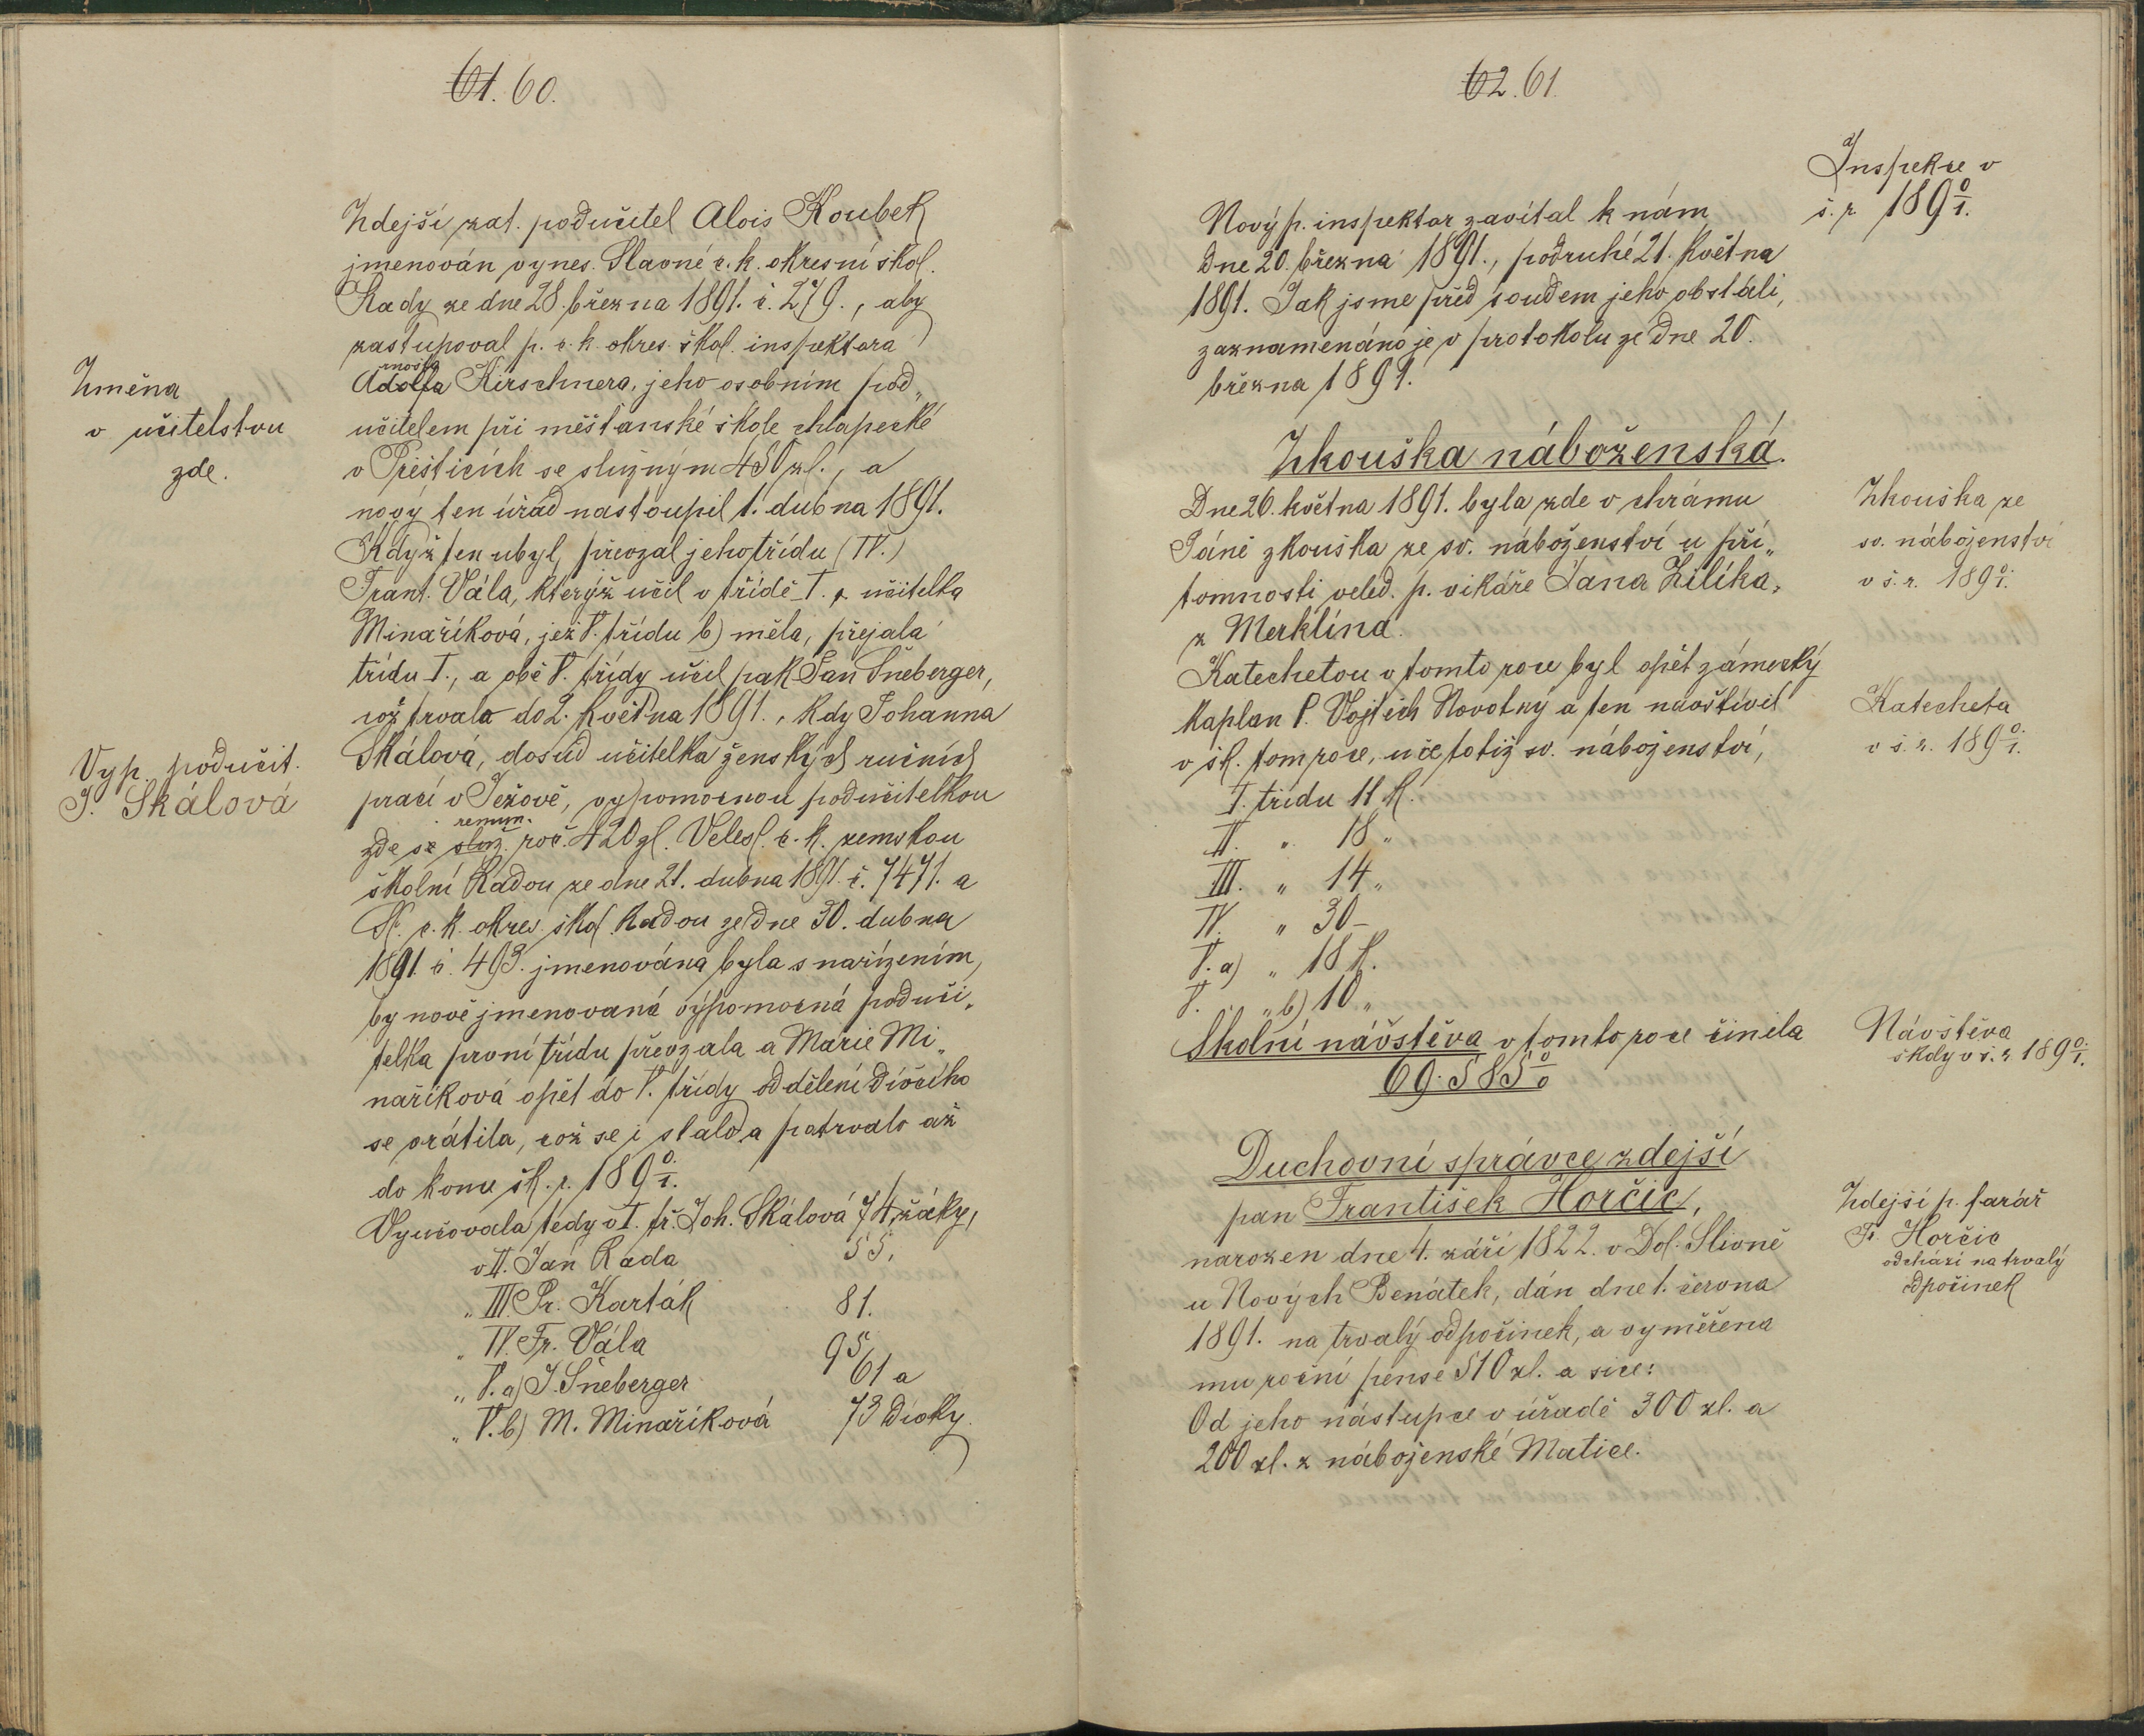 61. 60.
Zdejší zat. podučitel Alois Koubek
jmenován vynes. Slavné c. k. okresní škol.
Rady ze dne 28. března 1891. č. 279., aby
zastupoval p. c. k. okres. škol. inspektora
Adolfa Kirschnera, jeho osobním pod„
učitelem při měšťanské škole chlapecké
v Přešticích se služným 450 zl., a
nový ten úřad nastoupil 1. dubna 1891.
Změna
v učitelstvu
zde.
Když ten ubyl, převzal jeho třídu (IV.)
Frant. Vála, kterýž učil v třídě I. a učitelka
Minaříková, jež V. třídu b) měla, přejala
třídu I., a obě V. třídy učil pak Jan Šneberger,
což trvalo do 2. Května 1891., Kdy Johanna
Skálová, dosud učitelka ženských ručních
prací v Ježově, vypomocnou podučitelkou
remun.
zde se služ. roč. 420 zl. Velesl. c. k. zemskou
školní Radou ze dne 21. dubna 1891. č. 7471. a
Sl. c. k. okres. škol. Radou ze dne 30. dubna
1891. č. 493. jmenována byla s nařízením,
by nově jmenovaná výpomocná poduči„
telka první třídu převzala a Marie Mi„
naříková opět do V. třídy oddělení dívčího
se vrátila, což se i stalo a potrvalo až
do konce šk. r. 1890/1.
Vyp. podučit.
J. Skálová
Vyučovala tedy v I. tř. Joh. Skálová 74 žáky,
v II. Jan Rada 55,
„ III. Pr. Karták 81.
„ IV. Fr. Vála 95
„ V. a) J. Šneberger 61 a
„ V. b) M. Minaříková 73 dívky.
62. 61.
Inspekce v
š. r. 1890/1.
Nový p. inspektor zavítal k nám
dne 20. března 1891., podruhé 21. Května
1891. Jak jsme před soudem jeho obstáli,
zaznamenáno je v protokolu ze dne 20.
března 1891.
Zkouška náboženská.
Dne 26. května 1891. byla zde v chrámu
Páně zkouška ze sv. náboženství u pří„
tomnosti veled. p. vikáře Jana Zilíka,
z Merklína.
Zkouška ze
sv. náboženství
v š. r. 1890/1.
Katechetou v tomto roce byl opět zámecký
kaplan P. Vojtěch Novotný a ten navštívil
v šk. tom roce, uče totiž sv. náboženství,
Katecheta
v š. r. 1890/1.
I. třídu 11 k.
II. „ 18 „
III. „ 14 „
IV. „ 30 –
V. a) „ 18 k.
V. „ b) 10 „
Školní návštěva v tomto roce činila
69.585 %
Návštěva
školy v š. r. 1890/1.
Duchovní správce zdejší
pan František Horčic,
narozen dne 4. září 1822. v Dol. Slivně
u Nových Benátek, dán dne 1. června
1891. na trvalý odpočinek, a vyměřena
mu roční pense 510 zl. a sice:
Od jeho nástupce v úřadě 300 zl. a
200 zl. z náboženské Matice.
Zdejší p. farář
Fr. Horčic
odchází na trvalý
odpočinek